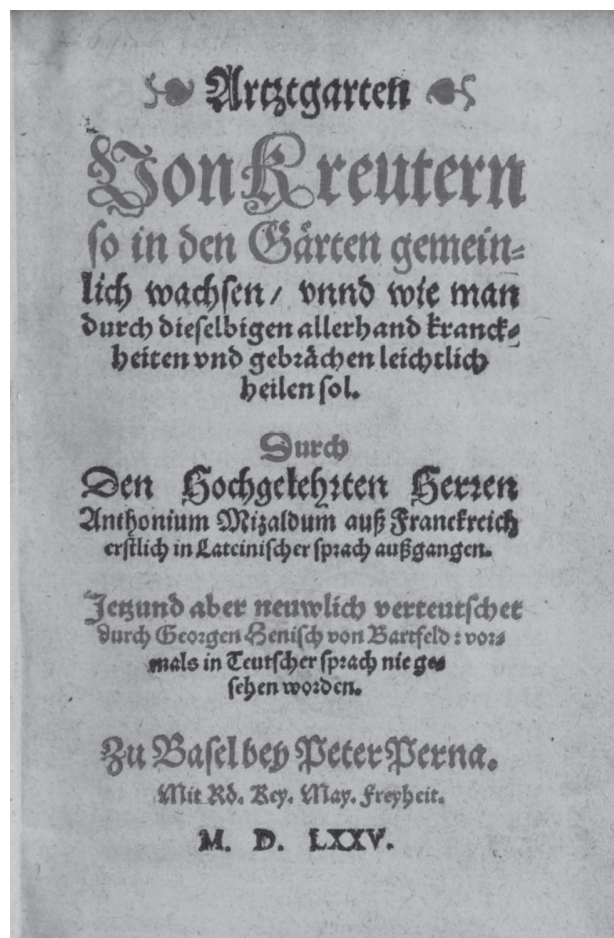 Artztgarten
Von Kreutern
so in den Gärten gemein-
lich wachsen / vnnd wie man
durch dieselbigen allerhand kranck-
heiten vnd gebrächen leichtlich
heilen sol.
Durch
Den Hochgelehrten Herren
Anthonium Mizaldum auß Franckreich
erstlich in Lateinischer sprach außgangen.
Jetzund aber neuwlich verteutschet
durch Georgen Henisch von Bartfeld : vor-
mals in Teutscher sprach nie ge-
sehen worden.
Zu Basel bey Peter Perna.
Mit Rö. Key. May. Freyheit.
M. D. LXXV.